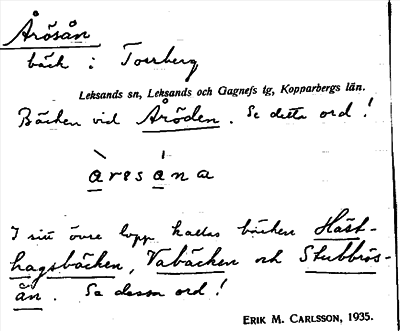 Årösån
bäck i Torrberg
Leksands sn, Leksands och Gagnefs tg, Kopparbergs län.
Bäcken vid Åröden. Se detta ord!
aresana
I sitt övre lopp kallas bäcken Häst-
hagsbäcken, Vabäcken och Stubbrös-
ån. Se dessa ord!
ERIK M. CARLSSON, 1935.